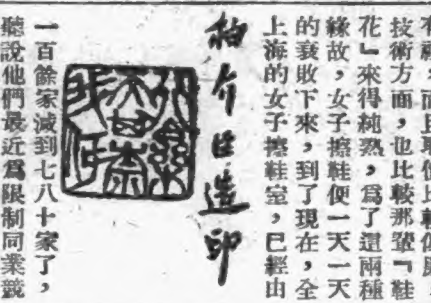 而且取值比較低廉
技術方面，也比較那輩『鞋
花』來得純熟，爲了這兩種
緣故，女子擦鞋便一天一天
的衰敗下來，到了現在，全
上海的女子擦鞋室，已經由
介臣造印
一百餘家減到七八十家了，
聽說他們最近爲限制同業競